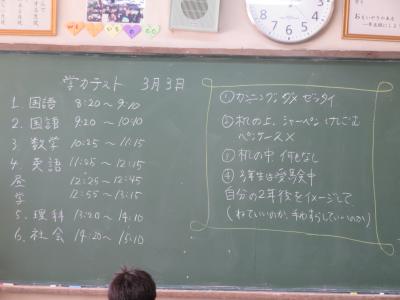 学力テスト 3月3日
1. 国語 8:20~9:10
2. 国語 9:20~10:10
3. 数学 10:25~11:15
4. 英語 11:25~12:15
昼 12:25~12:45
学 12:55~13:15
5. 理科 13:20~14:10
6. 社会 14:20~15:10
①カンニングダメ ゼッタイ
②机の上、シャーペン けしごむ
ペンケース×
③机の中 何もなし
④3年生は受験中
自分の2年後をイメージして
(ねていいのか、手わすらしていいのか)